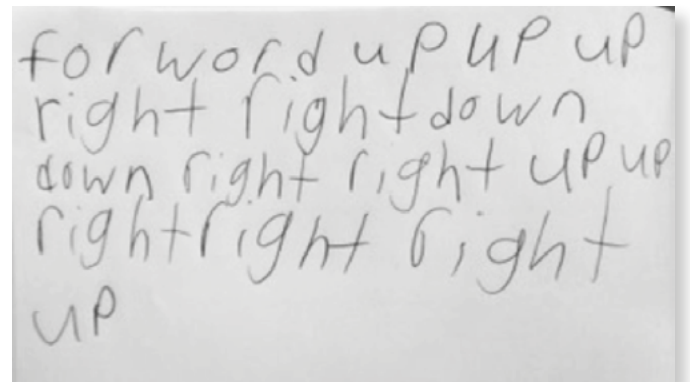 forword up up up
right right down
down right right up up
right right right
up